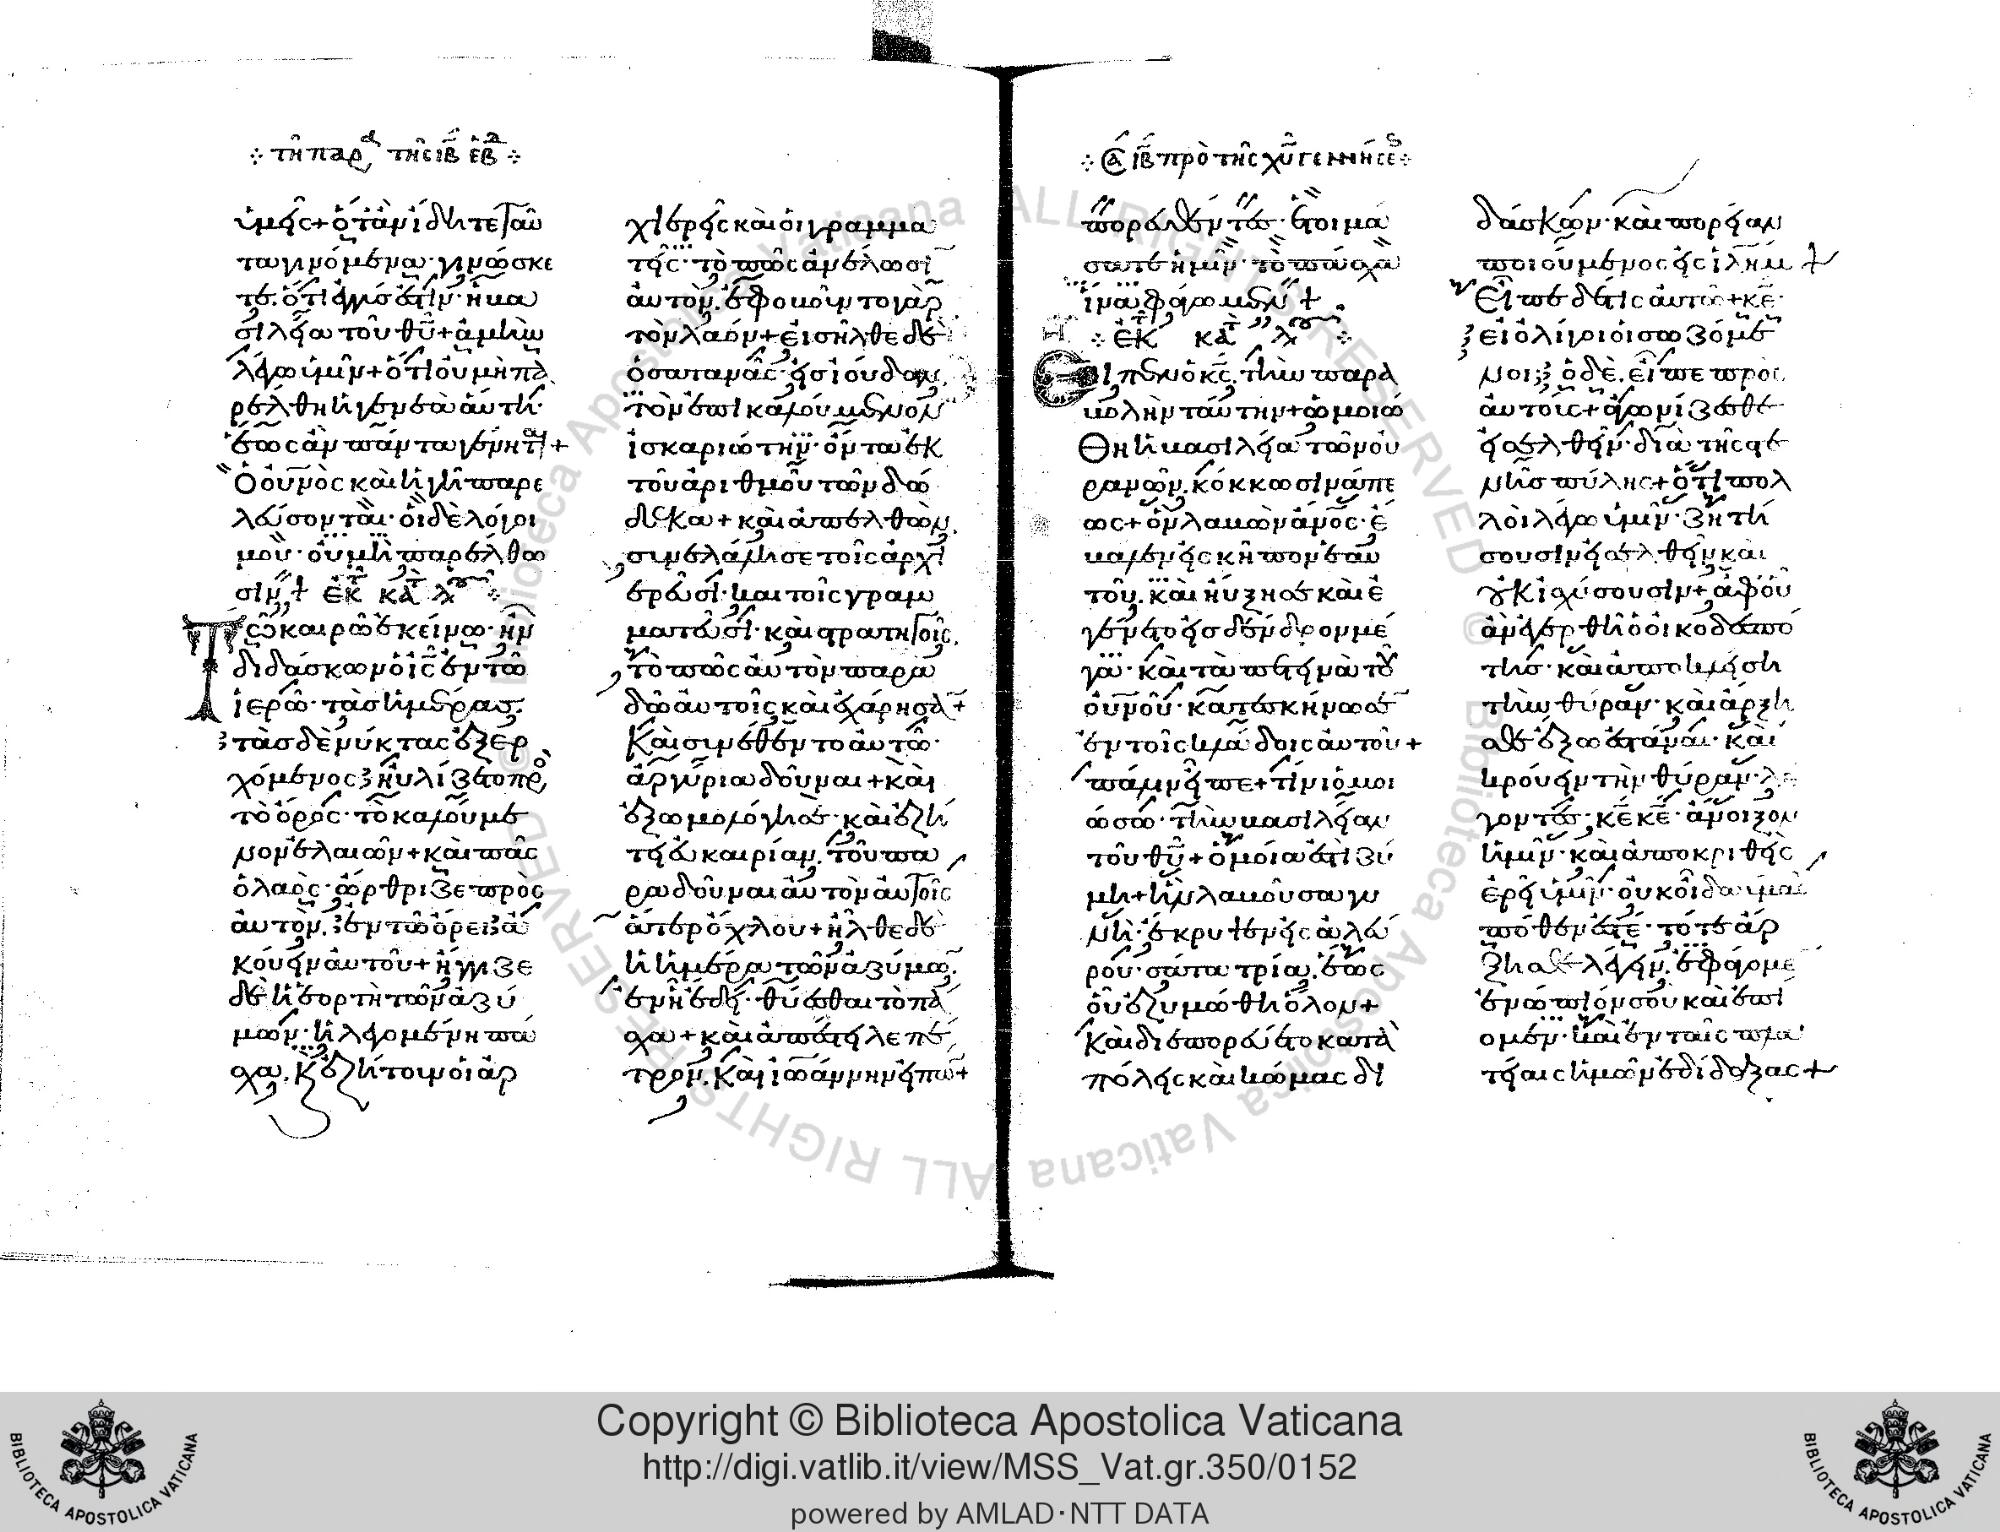 ⁘ τῆ παρ τῆς ιβ εβδ ⁘
ὑμεῖς+ ὅταν ἴδητε ταῦ
τα γινόμενα· γινώσκε
τε. ὅτι ἐγγύς ἐστιν· ἡ βα
σιλεία τοῦ θῦ+ ἀμὴν
λέγω ὑμῖν+ ὅτι οὐ μὴ πα
ρέλθη ἡ γενεὰ αὕτη·
ἕως ἂν πάντα γένηται+
Ὁ οὐνὸς καὶ ἡ γῆ παρε
λεύσονται· οἱ δὲ λόγοι
μου· οὐ μὴ παρέλθω
σιν+ ἐκ κατ λ
Τῶ καιρῶ ἐκείνω· ἦν
διδάσκων ὁ ἰς ἐν τῶ
ἱερῶ· τὰς ἡμέρας.
τὰς δὲ νύκτας ἐξερ
χόμενος ηὐλίζετο πρὸ
τὸ ὄρος· τὸ καλούμε
νον ἐλαιῶν+ καὶ πᾶς
ὁ λαὸς· ὤρθριζε πρὸς
αὐτὸν. ἐν τῶ ὄρει ἀ
κούειν αὐτοῦ+ ἤγγιζε
δὲ ἡ ἑορτὴ τῶν ἀζύ
μων· ἡ λεγομένη πά
σχα. κ ἐζήτουν οἱ ἀρ
χιερεῖς καὶ οἱ γραμμα
τεῖς· τὸ πῶς ἀνέλωσι
αὐτὸν. ἐφοβοῦντο γὰρ
τὸν λαόν+ εἰσῆλθε δὲ
ὁ σατανᾶς· εἰς ἰούδαν
τὸν ἐπικαλούμενον
ἰσκαριώτην· ὄντα ἐκ
τοῦ ἀριθμοῦ τῶν δώ
δεκα+ καὶ ἀπελθὼν.
συνελάλησε τοῖς ἀρχι
ερεῦσι· καὶ τοῖς γραμ
ματεῦσι· καὶ στρατηγοῖς.
τὸ πῶς αὐτὸν παρα
δῶ αὐτοῖς καὶ ἐχάρησα+
Καὶ συνέθεντο αὐτῶ·
ἀργύρια δοῦναι+ καὶ
ἐξωμολόγησε· καὶ ἐζή
τει εὐκαιρίαν. τοῦ πα
ραδοῦναι αὐτὸν αὐτοῖς
ἄτερ ὄχλου+ ἦλθε δὲ
ἡ ἡμέρα τῶν ἀζύμων.
ἐν ἧ ἔδει· θύεσθαι τὸ πά
σχα+ καὶ ἀπέστειλε πέ
τρον. Καὶ ἰωάννην εἰπὼ+
⁘ Σα ιβ πρὸ τῆς χῦ γεννήσε ⁘
πορευθέντες· ἑτοιμά
σατε ἡμῖν· τὸ πάσχα
ἵνα φάγωμεν+
⁘ ἐκ κατ λ ⁘
Εἶπεν ὁ κς. τὴν παρα
βολὴν ταύτην+ ὡμοιώ
θη ἡ βασιλεία τῶν οὐ
ρανῶν. κόκκω σινάπε
ως+ ὃν λαβὼν ἄνος· ἔ
βαλεν εἰς κῆπον ἑαυ
τοῦ. καὶ ηὔξησε καὶ ἐ
γένετο εἰς δένδρον μέ
γα· καὶ τὰ πετεινὰ τοῦ
οὐνοῦ· κατεσκήνωσε
ἐν τοῖς κλάδοις αὐτοῦ+
πάλιν εἶπε+ τίνι ὁμοι
ώσω· τὴν βασιλείαν
τοῦ θῦ+ ὁμοία ἐστὶ ζύ
μη+ ἣν λαβοῦσα γυ
νὴ· ἔκρυψεν εἰς ἀλεύ
ρου· σάτα τρία. ἕως
οὗ ἐζυμώθη ὅλον+
Καὶ διεπορεύετο κατὰ
πόλεις καὶ κώμας δι
δάσκων· καὶ πορείαν
ποιούμενος εἰς ἰλημ+
Εἶπε δέ τις αὐτῶ+ κε·
εἰ ὀλίγοι οἱ σωζόμε
νοι; ὁ δὲ. εἶπε πρὸς
αὐτούς+ ἀγωνίζεσθε
εἰσελθεῖν· διὰ τῆς στε
νῆς πύλης+ ὅτι πολ
λοὶ λέγω ὑμῖν· ζητή
σουσιν εἰσελθεῖν καὶ
οὐκ ἰσχύσουσιν+ ἀφ οὗ
ἂν ἐγερθῆ ὁ οἰκοδεσπό
της· καὶ ἀποκλείση
τὴν θύραν· καὶ ἄρξη
σθε ἔξω ἑστάναι· καὶ
κρούειν τὴν θύραν· λέ
γοντες· κε κε· ἄνοιξον
ἡμῖν· καὶ ἀποκριθεὶς
ἐρεῖ ὑμῖν· οὐκ οἶδα ὑμᾶς
πόθεν ἐστέ· τότε ἄρ
ξησθε λέγειν. ἐφάγομε
ἐνώπιόν σου καὶ ἐπί
ομεν· καὶ ἐν ταῖς πλα
τείαις ἡμῶν ἐδίδαξας+
Copyright © Biblioteca Apostolica Vaticana
http://digi.vatlib.it/view/MSS_Vat.gr.350/0152
powered by AMLAD·NTT DATA
BIBLIOTECA APOSTOLICA VATICANA
BIBLIOTECA APOSTOLICA VATICANA